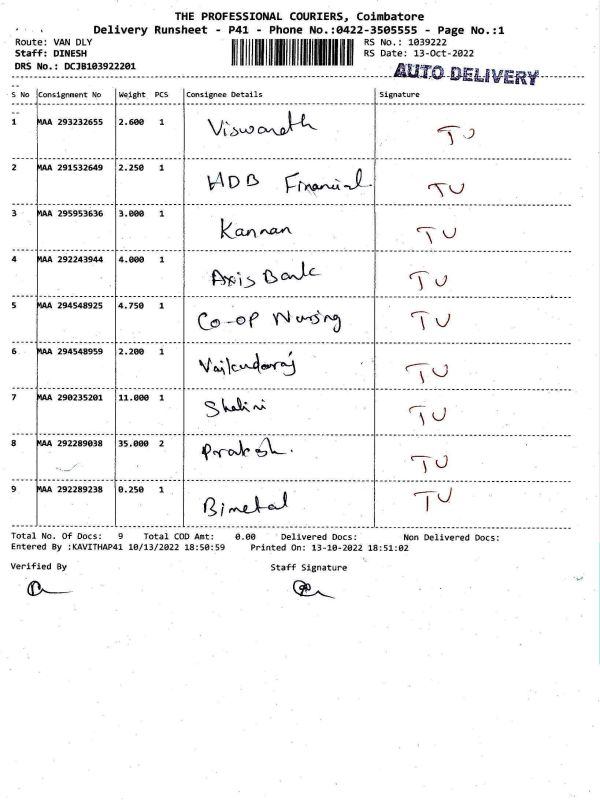 THE PROFESSIONAL COURIERS, Coimbatore
Delivery Runsheet - P41 - Phone No.:0422-3505555 - Page No.:1
Route: VAN DLY RS No.: 1039222
Staff: DINESH RS Date: 13-Oct-2022
DRS No.: DCJB103922201
AUTO DELIVERY
S No Consignment No Weight PCS Consignee Details Signature
1 MAA 293232655 2.600 1 Viswanath TU
2 MAA 291532649 2.250 1 HDB Financial TU
3 MAA 295953636 3.000 1 Kannan TU
4 MAA 292243944 4.000 1 Axis Bank TU
5 MAA 294548925 4.750 1 Co-op Nursing TU
6 MAA 294548959 2.200 1 TU
7 MAA 290235201 11.000 1 Shalini TU
8 MAA 292289038 35.000 2 Prakash. TU
9 MAA 292289238 0.250 1 Bimetal TU
Total No. Of Docs: 9 Total COD Amt: 0.00 Delivered Docs: Non Delivered Docs:
Entered By :KAVITHAP41 10/13/2022 18:50:59 Printed On: 13-10-2022 18:51:02
Verified By Staff Signature